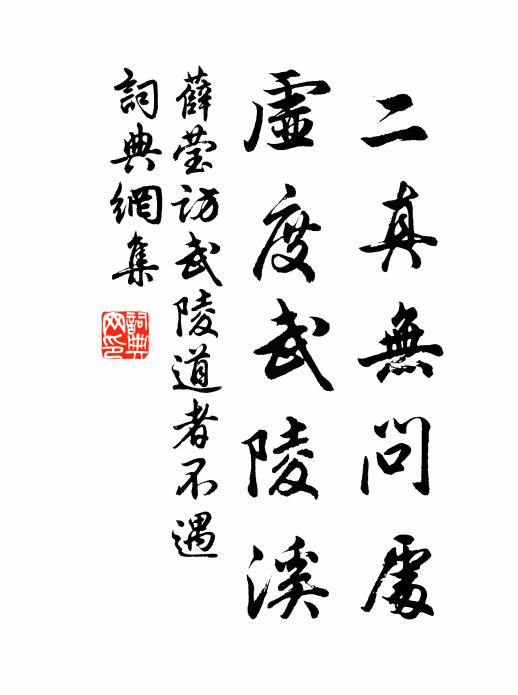 二真無問處
虛度武陵溪
薛瑩訪武陵道者不遇
詞典網集
詞典網印